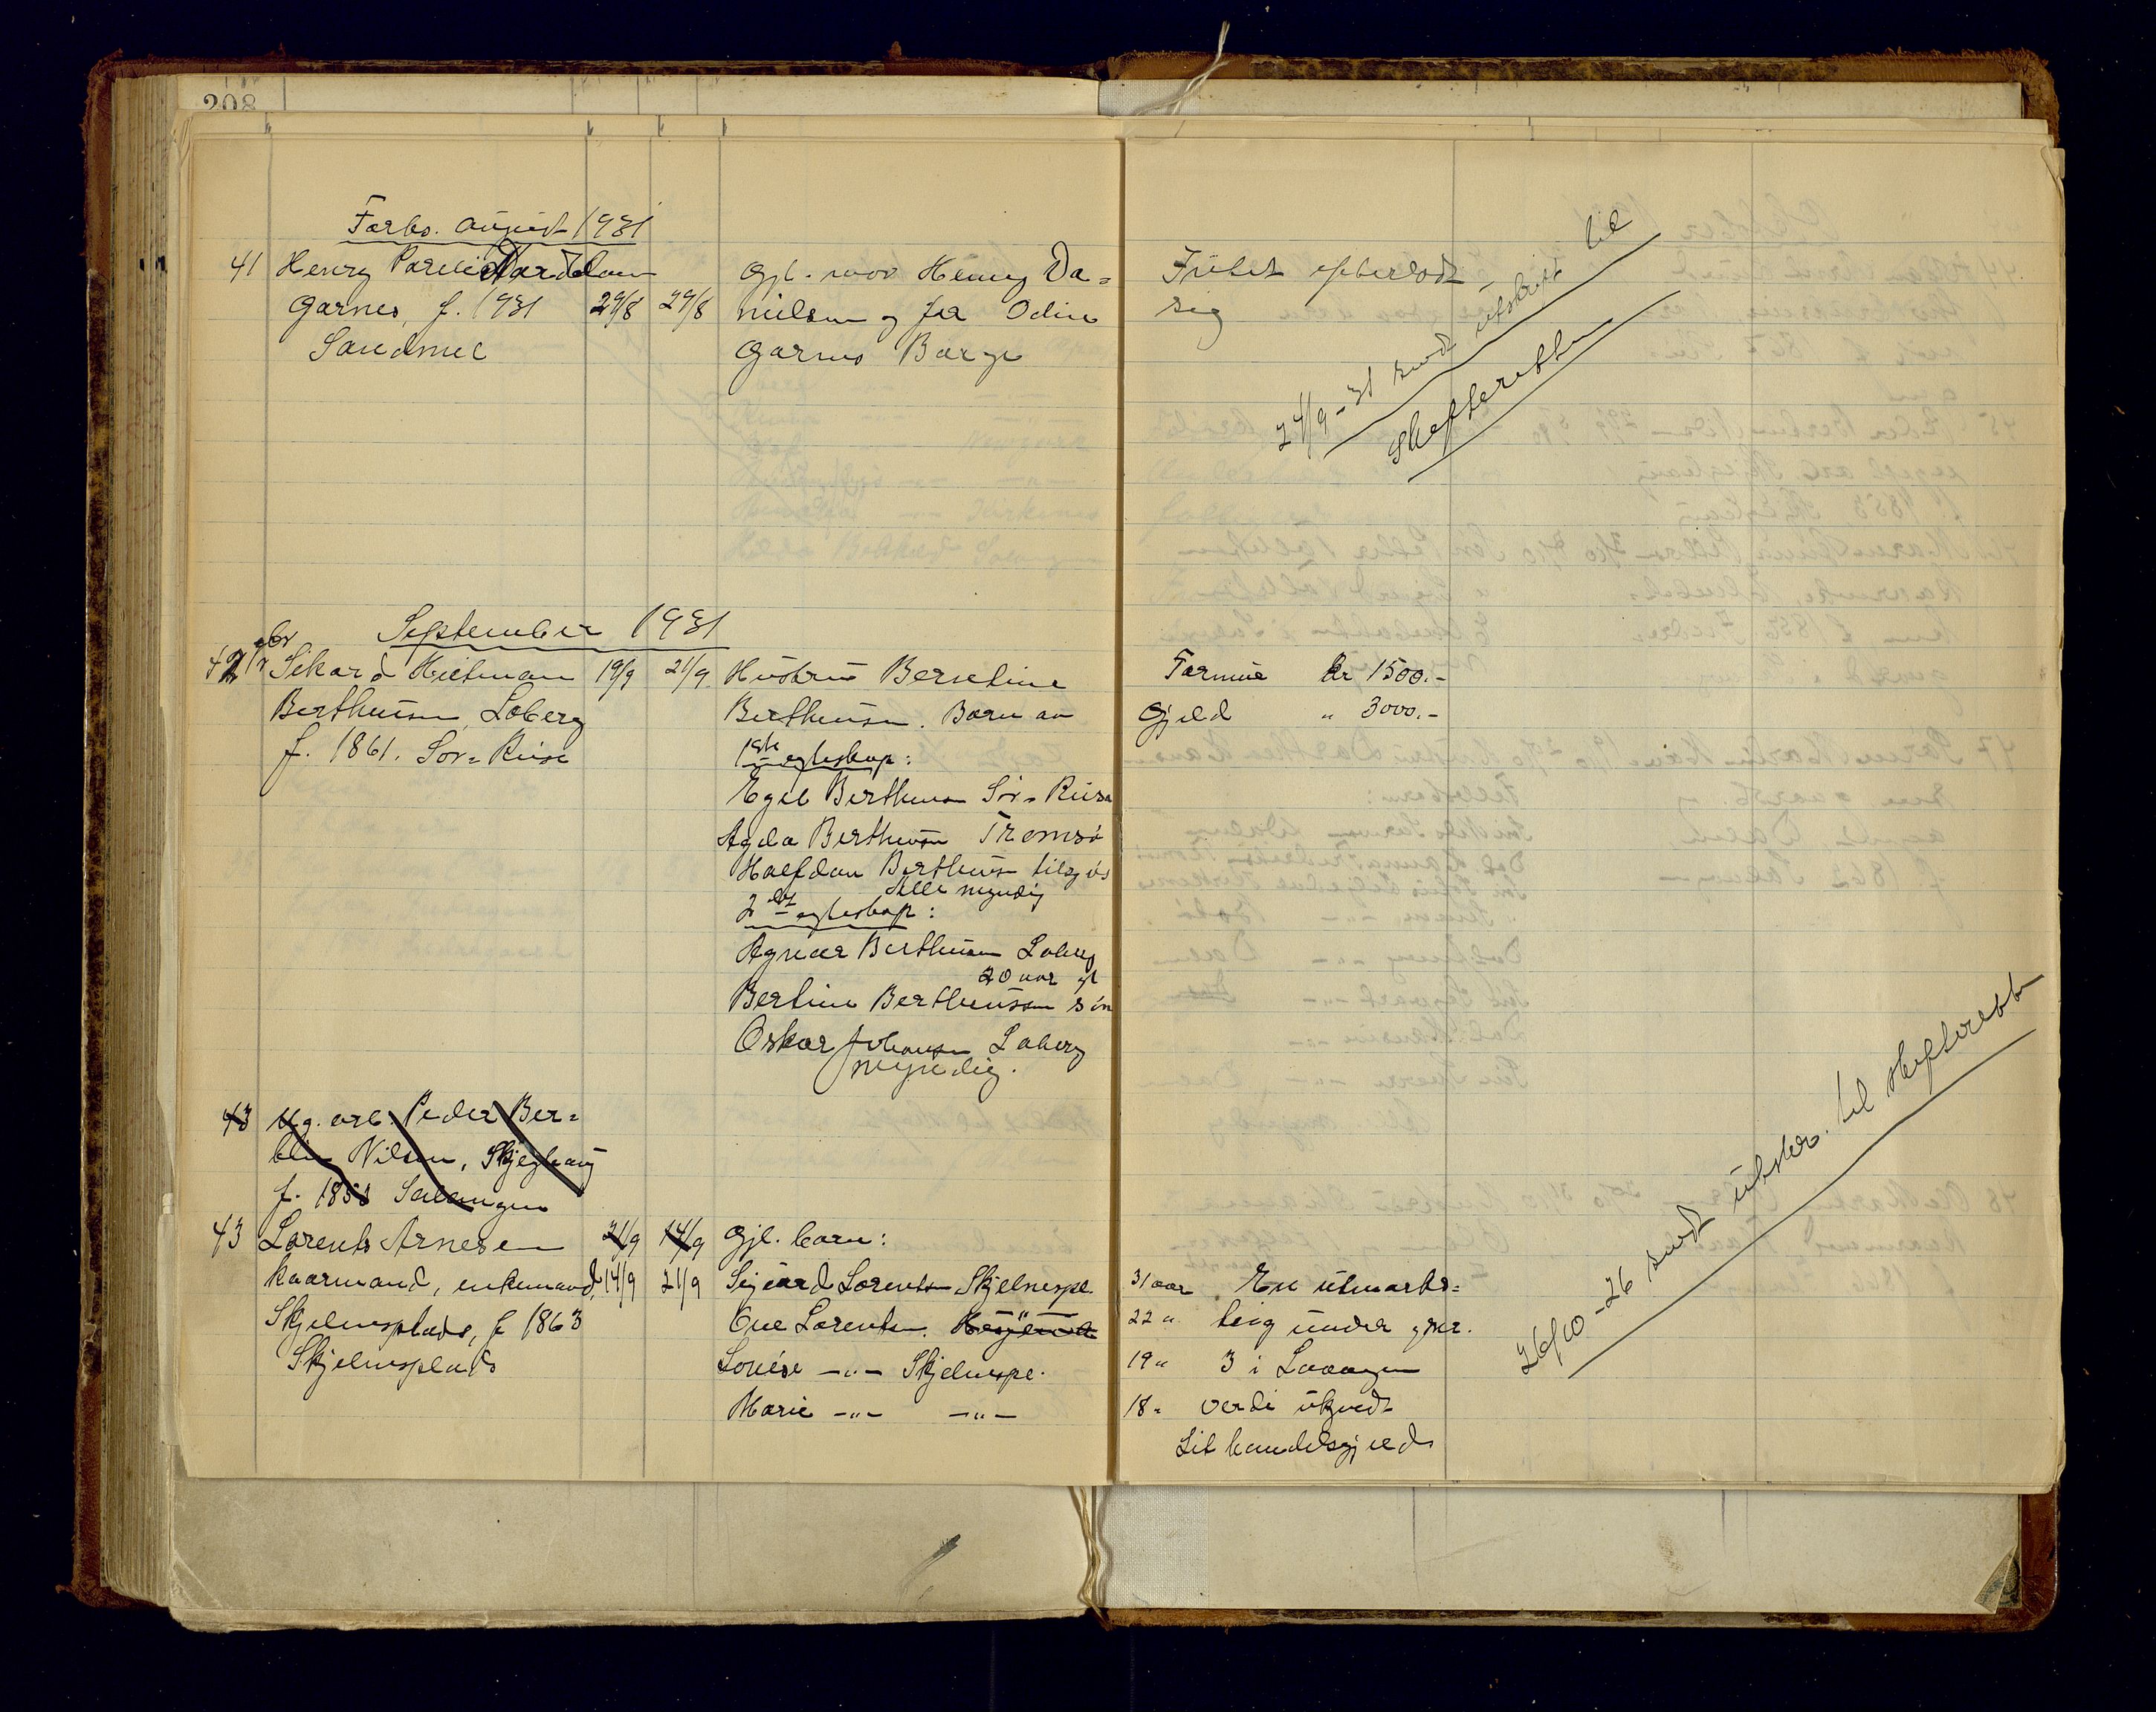 208
Forts. august 1931
41 Henry Nordelau
Garnes, f. 1931 29/8 29/8
Sandmel
Gjl. mor Henny Da=
nielsen og far Odin
Garnes Barge
Intet efterlodt
sig
24/9-31 sendt utskrift til
skifteretten
September 1931
42 Sikard Hieltman 19/9 21/9
Berthusen, Løberg
f. 1861. Sør=Reise
Hustru Bersetine
Berthusen. Barn av
1ste egteskap:
Egil Berthusen Sør-Reise
Agda Berthusen Tromsø
Halfdan Berthusen tilsjøs
Alle myndig
2det egteskap:
Agnar Berthusen Løberg
20 aar gl
Bertine Berthenssen søn
Oskar Johansen Løberg
myndig.
Formue kr 1500.-
Gjæld " 3000.-
43 Ug. arb. Peder Ber=
tin Nilsen, Skjeghaug
f. 1853 Salangen
43 Lorents Arnesen 21/9 14/9
kaarmand, enkemand, 14/9 21/9
Skjelnesplads, f 1863
Skjelnesplads
Gjl. barn:
Sigurd Lorentsen Skjelnespl. 31 aar
Ove Lorentsen. 22 "
Lovise -"- Skjelnespl. 19 "
Marie -"- -"- 18 "
En utmarks=
teig under gnr.
3 i Lavangen
verdi ukjendt
Lit handelsgjæld
26/10-26 sendt utskr. til skifterett